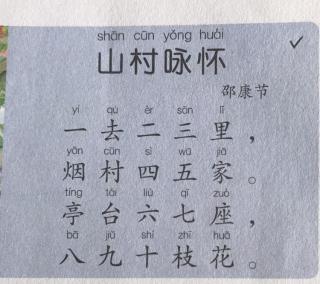 shān cūn yǒng huái
山村咏怀
邵康节
yí qù èr sān lǐ
一去二三里，
yān cūn sì wǔ jiā
烟村四五家。
tíng tái liù qī zuò
亭台六七座，
bā jiǔ shí zhī huā
八九十枝花。